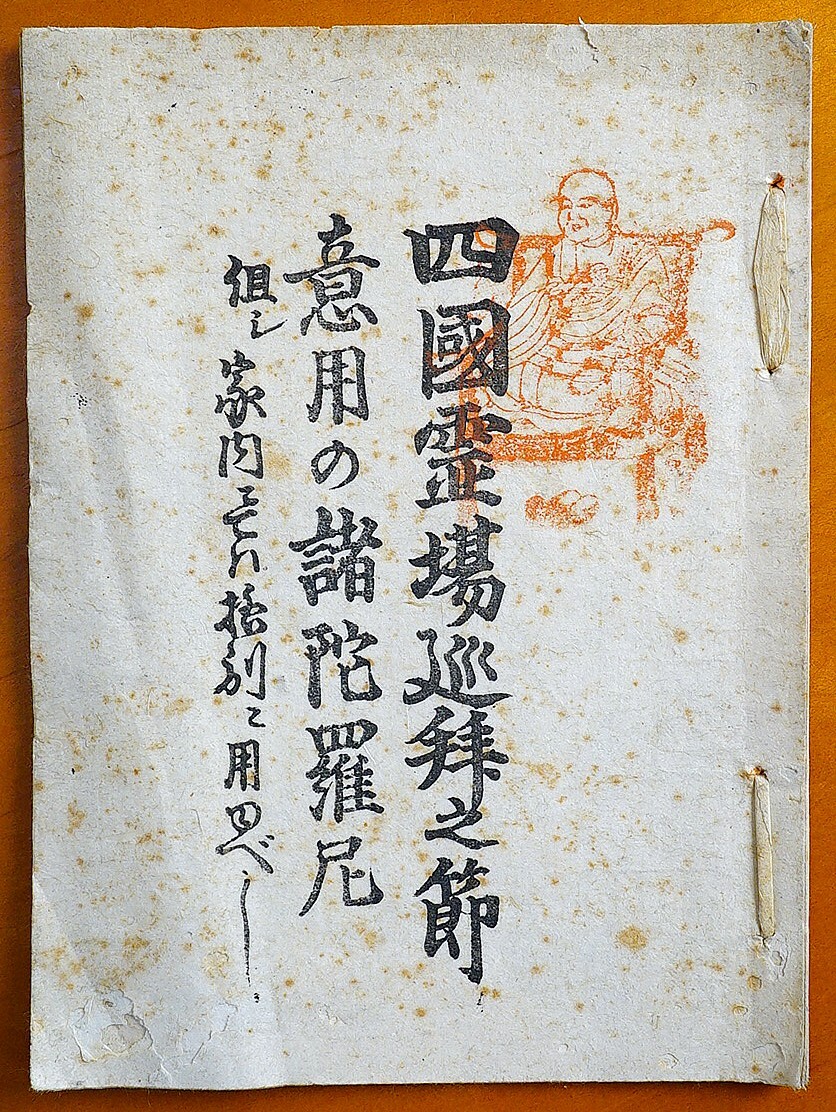 四國霊場廵拜之節
意用の諸陀羅尼
但シ家内ニてハ格別ニ用ゆべし